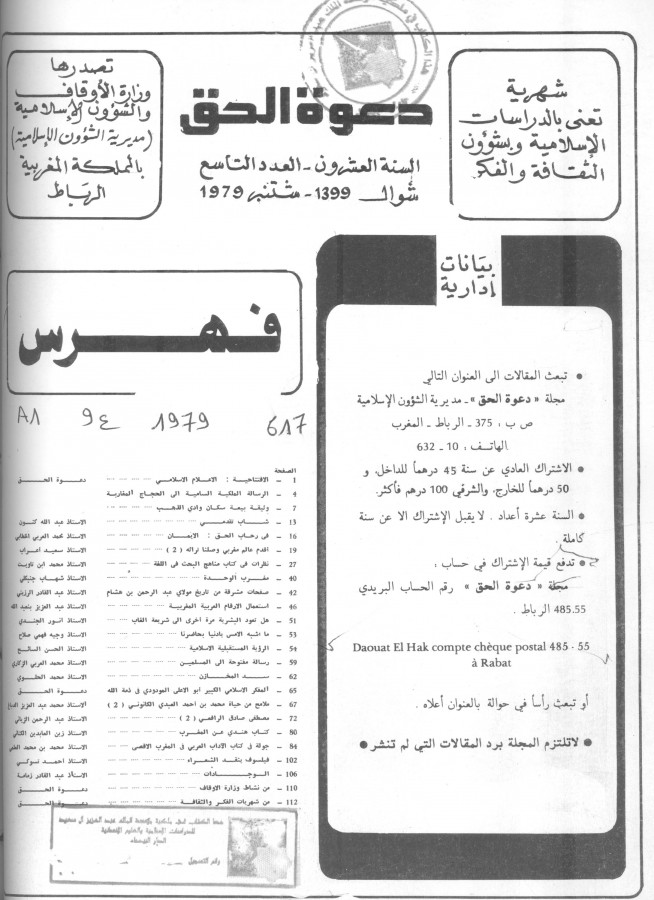 شهرية
تعنى بالدراسات
الإسلامية وبشؤون
الثقافة والفكر
دعوة الحق
السنة العشرون - العدد التاسع
شوال 1399 - شتنبر 1979
تصدرها
وزارة الأوقاف
والشؤون الإسلامية
(مديرية الشؤون الإسلامية)
بالمملكة المغربية
الرباط
بيانات
إدارية
● تبعث المقالات الى العنوان التالي
مجلة « دعوة الحق » ـ مديرية الشؤون الإسلامية
ص ب : 375 ـ الرباط ـ المغرب
الهاتف : 10 ـ 632
● الاشتراك العادي عن سنة 45 درهماً للداخل، و
50 درهماً للخارج، والشرفي 100 درهم فأكثر.
● السنة عشرة أعداد . لا يقبل الإشتراك الا عن سنة
كاملة .
● تدفع قيمة الإشتراك في حساب :
مجلة « دعوة الحق » رقم الحساب البريدي
485.55 الرباط .
Daouat El Hak compte chèque postal 485 - 55
à Rabat
أو تبعث رأساً في حوالة بالعنوان أعلاه .
● لاتلتزم المجلة برد المقالات التي لم تنشر ●
فهرس
A1 9٤ 1979 617
الصفحة
1 ـ الافتتاحية : الاعلام الاسلامي ..... دعوة الحق
4 ـ الرسالة الملكية السامية الى الحجاج المغاربة
7 ـ وثيقة بيعة سكان وادي الذهب .....
13 ـ شباب تقدمي ..... الاستاذ عبد الله كنون
16 ـ في رحاب الحق : الايمان ..... الاستاذ محمد العربي الخطابي
19 ـ أقدم عالم مغربي وصلنا تراثه ( 2 ) ..... الاستاذ سعيد اعراب
27 ـ نظرات في كتاب مناهج البحث في اللغة ..... الاستاذ محمد ابن تاويت
40 ـ مغرب الوحدة ..... الاستاذ شهاب جنبكلي
42 ـ صفحات مشرقة من تاريخ مولاي عبد الرحمن بن هشام ..... الاستاذ عبد القادر
46 ـ استعمال الارقام العربية المغربية ..... الاستاذ عبد العزيز بنعبد الله
51 ـ هل تعود البشرية مرة اخرى الى شريعة الغاب ..... الاستاذ انور الجندي
53 ـ ما أشبه الامس بادنيا بحاضرنا ..... الاستاذ وجيه فهمي صلاح
54 ـ الرؤية المستقبلية الاسلامية ..... الاستاذ الحسن السائح
59 ـ رسالة مفتوحة الى المسلمين ..... الاستاذ محمد العربي الزكاري
62 ـ سد المخازن ..... الاستاذ محمد الحلوي
65 ـ المفكر الاسلامي الكبير أبو الاعلى المودودي في ذمة الله ..... دعوة الحق
67 ـ ملامح من حياة محمد بن احمد العبدي الكانوني ( 2 ) ..... الاستاذ محمد عبد العزيز الدباغ
72 ـ مصطفى صادق الرافعي ( 2 ) ..... الاستاذ عبد الرحمن
80 ـ كتاب هندي عن المغرب ..... الاستاذ زين العابدين الكتاني
84 ـ جولة في كتاب الآداب العربي في المغرب الاقصى ..... الاستاذ محمد بن محمد العلمي
102 ـ فيلسوف ينقد الشعراء ..... الاستاذ احمد تسوكي
106 ـ الوجادات ..... الاستاذ عبد القادر زمامة
110 ـ من نشاط وزارة الاوقاف ..... دعوة الحق
112 ـ من شهريات الفكر والثقافة ..... دعوة الحق